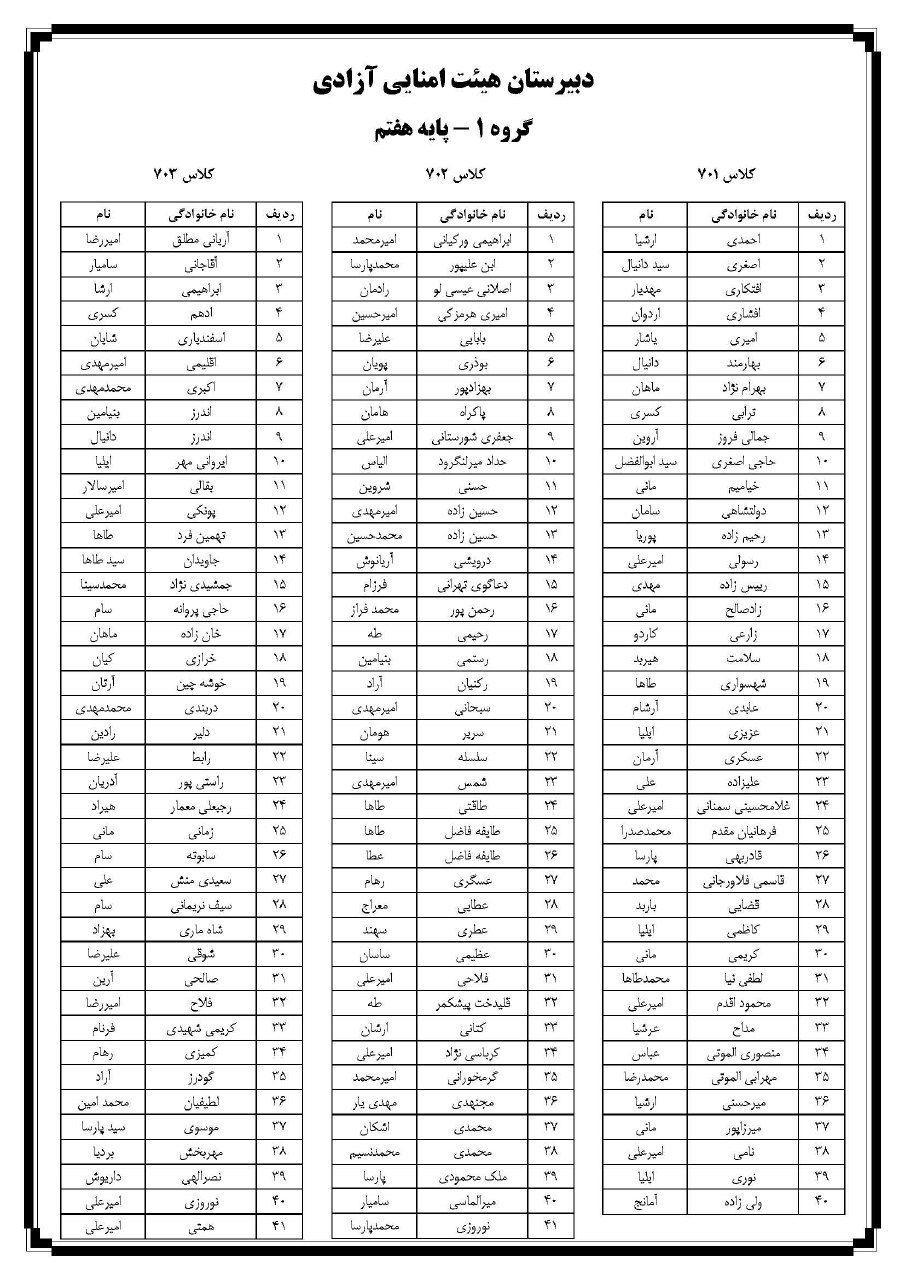 دبیرستان هیئت امنایی آزادی
گروه ۱ – پایه هفتم
کلاس ۷۰۱
ردیف نام خانوادگی نام
۱ احمدی ارشیا
۲ اصغری سید دانیال
۳ افتکاری مهدیار
۴ افشاری اردوان
۵ امیری یاشار
۶ بهارمند دانیال
۷ بهرام نژاد ماهان
۸ ترابی کسری
۹ جمالی فروز آروین
۱۰ حاجی اصغری سید ابوالفضل
۱۱ خیامیم مانی
۱۲ دولتشاهی سامان
۱۳ رحیم زاده پوریا
۱۴ رسولی امیرعلی
۱۵ رییس زاده مهدی
۱۶ زادصالح مانی
۱۷ زارعی کاردو
۱۸ سلامت هیربد
۱۹ شهسواری طاها
۲۰ عابدی آرشام
۲۱ عزیزی ایلیا
۲۲ عسکری آرمان
۲۳ علیزاده علی
۲۴ غلامحسینی سمنانی امیرعلی
۲۵ فرهانیان مقدم محمدصدرا
۲۶ قادربهی پارسا
۲۷ قاسمی فلاورجانی محمد
۲۸ قضایی باربد
۲۹ کاظمی ایلیا
۳۰ کریمی مانی
۳۱ لطفی نیا محمدطاها
۳۲ محمود اقدم امیرعلی
۳۳ مداح عرشیا
۳۴ منصوری الموتی عباس
۳۵ مهرابی الموتی محمدرضا
۳۶ میرحسنی ارشیا
۳۷ میرزاپور مانی
۳۸ نامی امیرعلی
۳۹ نوری ایلیا
۴۰ ولی زاده آمانج
کلاس ۷۰۲
ردیف نام خانوادگی نام
۱ ابراهیمی ورکیانی امیرمحمد
۲ ابن علیپور محمدپارسا
۳ اصلانی عیسی لو رادمان
۴ امیری هرمزکی امیرحسین
۵ بابایی علیرضا
۶ بوذری پویان
۷ بهزادپور آرمان
۸ پاکراه هامان
۹ جعفری شورستانی امیرعلی
۱۰ حداد میرلنگرود الیاس
۱۱ حسنی شروین
۱۲ حسین زاده امیرمهدی
۱۳ حسین زاده محمدحسین
۱۴ درویشی آریانوش
۱۵ دعاگوی تهرانی فرزام
۱۶ رحمن پور محمد فراز
۱۷ رحیمی طه
۱۸ رستمی بنیامین
۱۹ رکنیان آراد
۲۰ سبحانی امیرمهدی
۲۱ سریر هومان
۲۲ سلسله سینا
۲۳ شمس امیرمهدی
۲۴ طاقتی طاها
۲۵ طایفه فاضل طاها
۲۶ طایفه فاضل عطا
۲۷ عسگری رهام
۲۸ عطایی معراج
۲۹ عطری سهند
۳۰ عظیمی ساسان
۳۱ فلاحی امیرعلی
۳۲ قلیدخت پیشکمر طه
۳۳ کتانی ارشان
۳۴ کرباسی نژاد امیرعلی
۳۵ گرمخورانی امیرمحمد
۳۶ مجتهدی مهدی یار
۳۷ محمدی اشکان
۳۸ محمدی محمدنسیم
۳۹ ملک محمودی پارسا
۴۰ میرالماسی سامیار
۴۱ نوروزی محمدپارسا
کلاس ۷۰۳
ردیف نام خانوادگی نام
۱ آریانی مطلق امیررضا
۲ آقاجانی سامیار
۳ ابراهیمی ارشا
۴ ادهم کسری
۵ اسفندیاری شایان
۶ اقلیمی امیرمهدی
۷ اکبری محمدمهدی
۸ اندرز بنیامین
۹ اندرز دانیال
۱۰ ایروانی مهر ایلیا
۱۱ بقالی امیرسالار
۱۲ پونکی امیرعلی
۱۳ تهمین فرد طاها
۱۴ جاویدان سید طاها
۱۵ جمشیدی نژاد محمدسینا
۱۶ حاجی پروانه سام
۱۷ خان زاده ماهان
۱۸ خرازی کیان
۱۹ خوشه چین آرتان
۲۰ دربندی محمدمهدی
۲۱ دلیر رادین
۲۲ رابط علیرضا
۲۳ راستی پور آدریان
۲۴ رجبعلی معمار هیراد
۲۵ زمانی مانی
۲۶ سابوته سام
۲۷ سعیدی منش علی
۲۸ سیف نریمانی سام
۲۹ شاه ماری بهزاد
۳۰ شوقی علیرضا
۳۱ صالحی آرین
۳۲ فلاح امیررضا
۳۳ کریمی شهیدی فرنام
۳۴ کمیزی رهام
۳۵ گودرز آراد
۳۶ لطیفیان محمد امین
۳۷ موسوی سید پارسا
۳۸ مهربخش بردیا
۳۹ نصرالهی داریوش
۴۰ نوروزی امیرعلی
۴۱ همتی امیرعلی